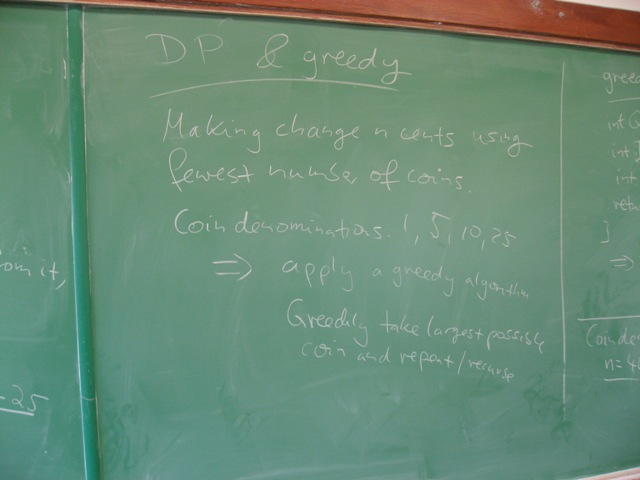 DP & greedy
Making change n cents using
fewest number of coins.
Coin denominations. 1, 5, 10, 25
⇒ apply a greedy algorithm
Greedily take largest possible
coin and repeat / recurse
om it,
-25
greed
int
int
int
retu
}
⇒
Coin de
n=4